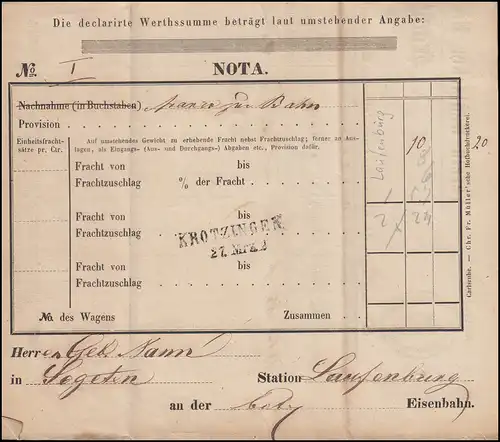 Die declarirte Werthssumme beträgt laut umstehender Angabe:
No. I NOTA.
Nachnahme (in Buchstaben) franco zur Bahn
Provision
Einheitsfracht-
sätze pr. Ctr.
Auf umstehendes Gewicht zu erhebende Fracht nebst Frachtzuschlag; ferner an Aus-
lagen, als Eingangs- (Aus- und Durchgangs-) Abgaben etc., Provision dafür.
Laufenburg
10
20
Fracht von bis
Frachtzuschlag % der Fracht
Fracht von bis
Frachtzuschlag
KROTZINGEN
27. Mrz.
Fracht von bis
Frachtzuschlag
No. des Wagens Zusammen
Carlsruhe. — Chr. Fr. Müller'sche Hofbuchdruckerei.
Herren Geb.
in Station Laufenburg
an der Eisenbahn.